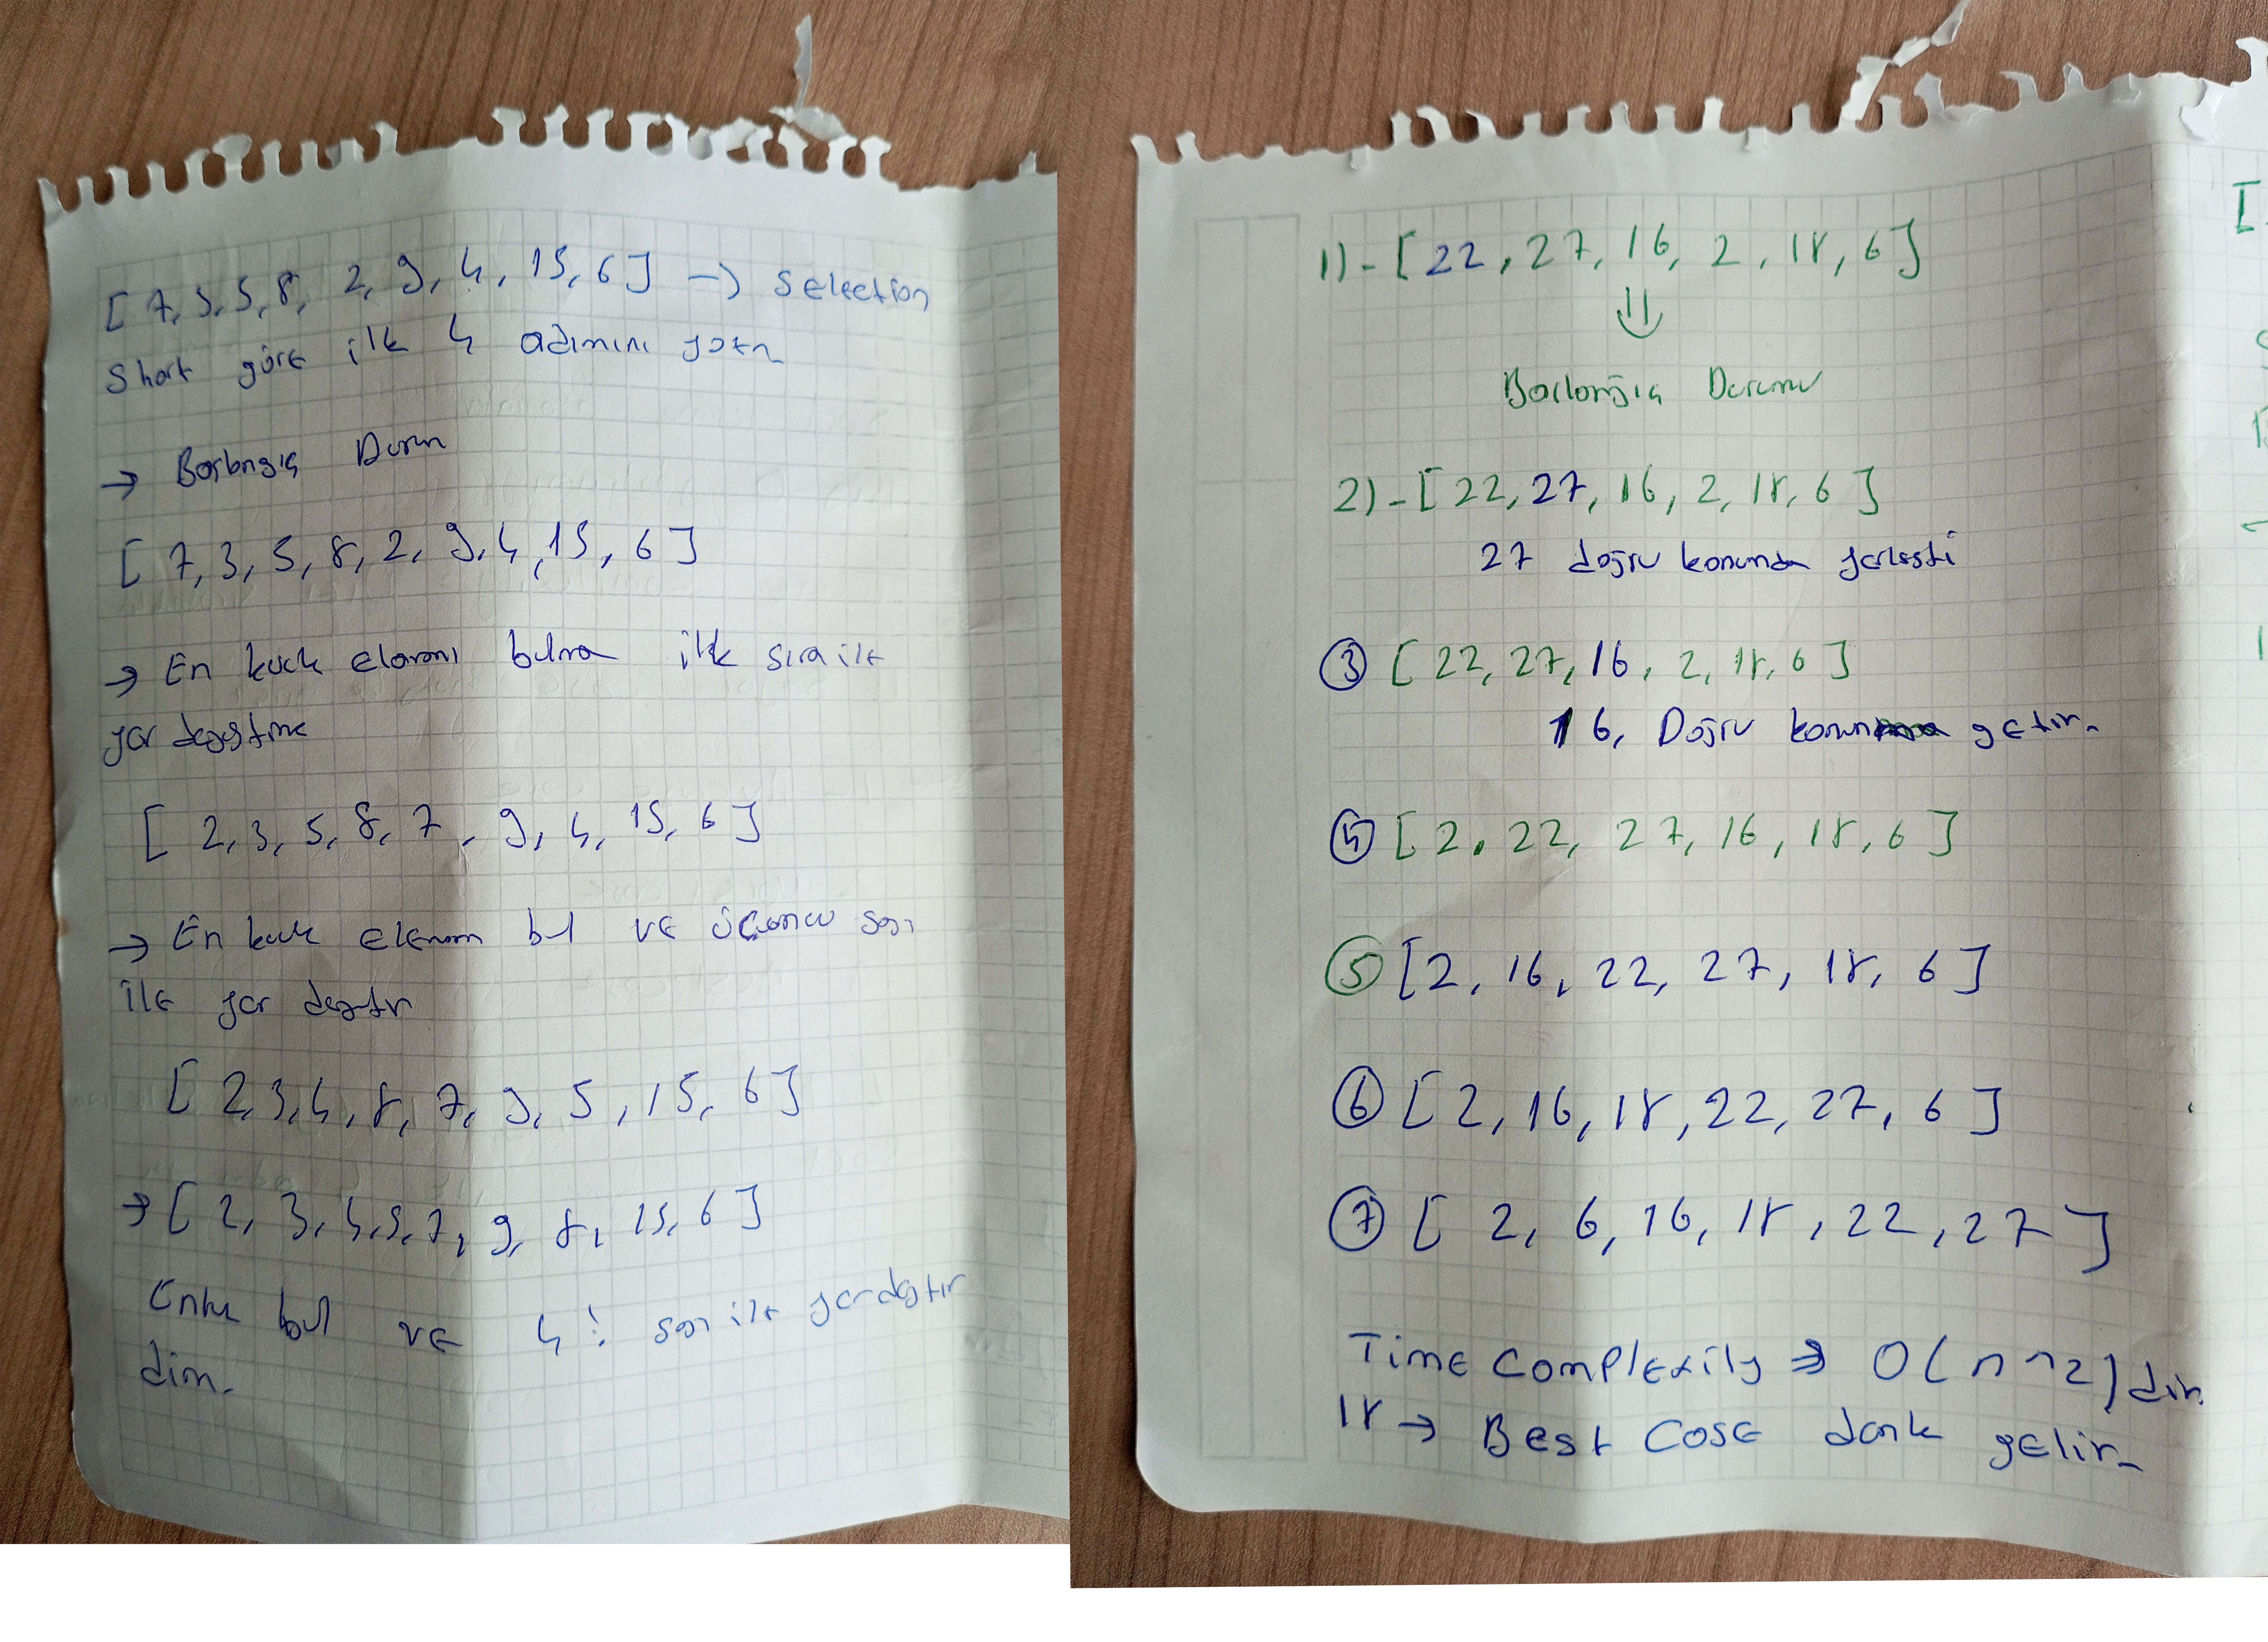 [ 7, 3, 5, 8, 2, 9, 4, 15, 6 ] → Selection
Short göre ilk 4 adımını yazın
→ Başlangıç Durum
[ 7, 3, 5, 8, 2, 9, 4, 15, 6 ]
→ En kucuk elamanı bulma ilk sıra ile
yer değiştirme
[ 2, 3, 5, 8, 7, 9, 4, 15, 6 ]
→ En kucuk eleman bul ve üçüncü sayı
ile yer değiştir
[ 2, 3, 4, 8, 7, 9, 5, 15, 6 ]
→ [ 2, 3, 4, 5, 7, 9, 8, 15, 6 ]
bul ve 4. sayı ile yer değiştir
dim.
1) - [ 22, 27, 16, 2, 18, 6 ]
⇓
Başlangıç Durumu
2) - [ 22, 27, 16, 2, 18, 6 ]
27 doğru konumda yerleşti
③ [ 22, 27, 16, 2, 18, 6 ]
16, Doğru getir.
④ [ 2, 22, 27, 16, 18, 6 ]
⑤ [ 2, 16, 22, 27, 18, 6 ]
⑥ [ 2, 16, 18, 22, 27, 6 ]
⑦ [ 2, 6, 16, 18, 22, 27 ]
Time Complexity ⇒ O(n^2) dir.
18 → Best Case denk gelir.